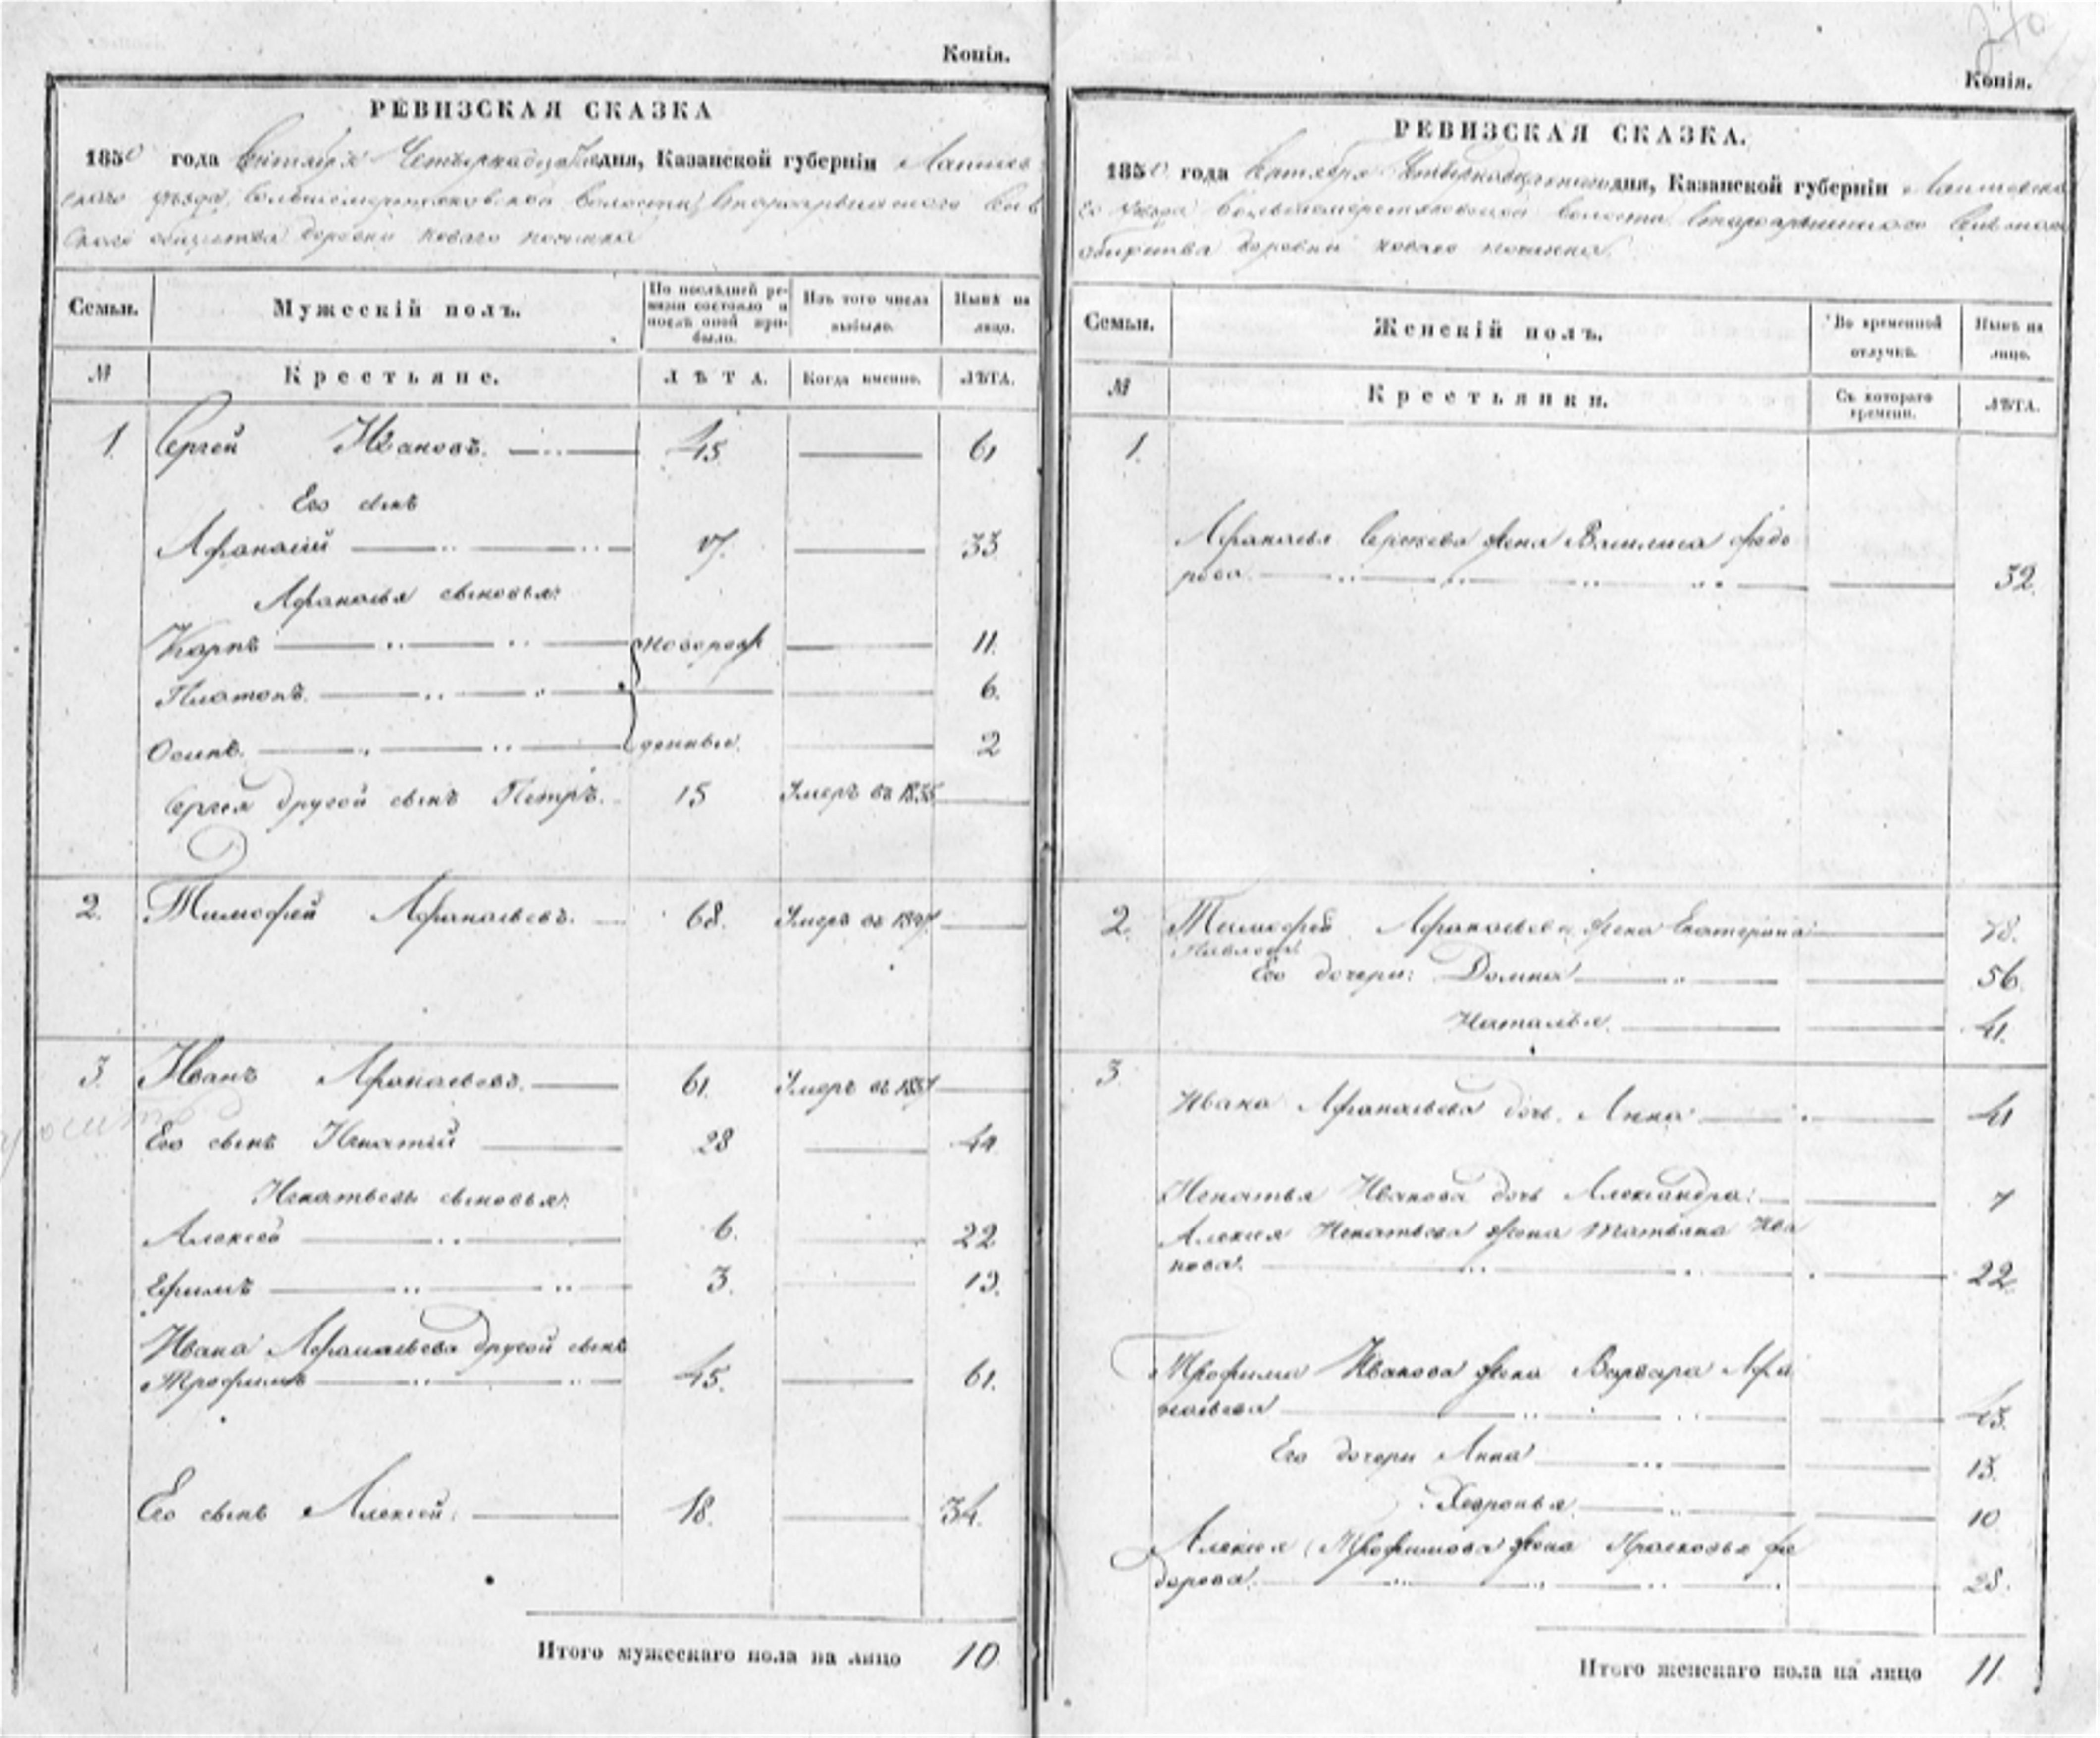 Копія.
РЕВИЗСКАЯ СКАЗКА
1850 года Октября Четырнадцатаго дня, Казанской губерніи Лаишев
скаго уѣзда, Волости, Староарышскаго Сель
скаго общества деревни Новаго починка
Семьи. Мужескій полъ. По послѣдней ревизіи состояло и послѣ оной прибыло. Изъ того числа выбыло. Нынѣ на лицо.
№ Крестьяне. ЛѢТА. Когда именно. ЛѢТА.
1. Сергей Ивановъ. 45 61
Его сынъ
Афанасій 17. 33
Афанасья сыновья:
Карпъ новорож 11.
Платонъ. 6.
Осипъ. денныя. 2
Сергея другой сынъ Петръ. 15 Умеръ въ 1835
2. Тимофей Афанасьевъ. 68. Умеръ въ
3. Иванъ Афанасьевъ. 61. Умеръ въ
Его сынъ Игнатій 28 44
Игнатьевы сыновья:
Алексей 6. 22
Ефимъ 3. 19.
Ивана Афанасьева другой сынъ
Трофимъ 45. 61.
Его сынъ Алексей. 18. 34.
Итого мужескаго пола на лицо 10
Копія.
РЕВИЗСКАЯ СКАЗКА.
1850 года Октября Четырнадцатаго дня, Казанской губерніи Лаишевска
го Уѣзда Волости Староарышскаго Сельскаго
общества деревни новаго починка.
Семьи. Женскій полъ. Во временной отлучкѣ. Нынѣ на лицо.
№ Крестьянки. Съ котораго времени. ЛѢТА.
1.
Афанасья Сергеева жена Василиса Федо
рова. 32.
2. Тимофея Афанасьева жена Екатерина 78.
Павлова.
Его дочери: Домна 56.
Наталья. 41.
3
Ивана Афанасьева дочь Анна 41
Игнатья Иванова дочь Александра. 7
Алексея Игнатьева жена Татьяна Ива
нова. 22
Трофима Иванова жена Варвара Афа
насьева 43.
Его дочери Анна 13.
Хевронья. 10
Алексея Трофимова жена Прасковья Фе
дорова. 28.
Итого женскаго пола на лицо 11.